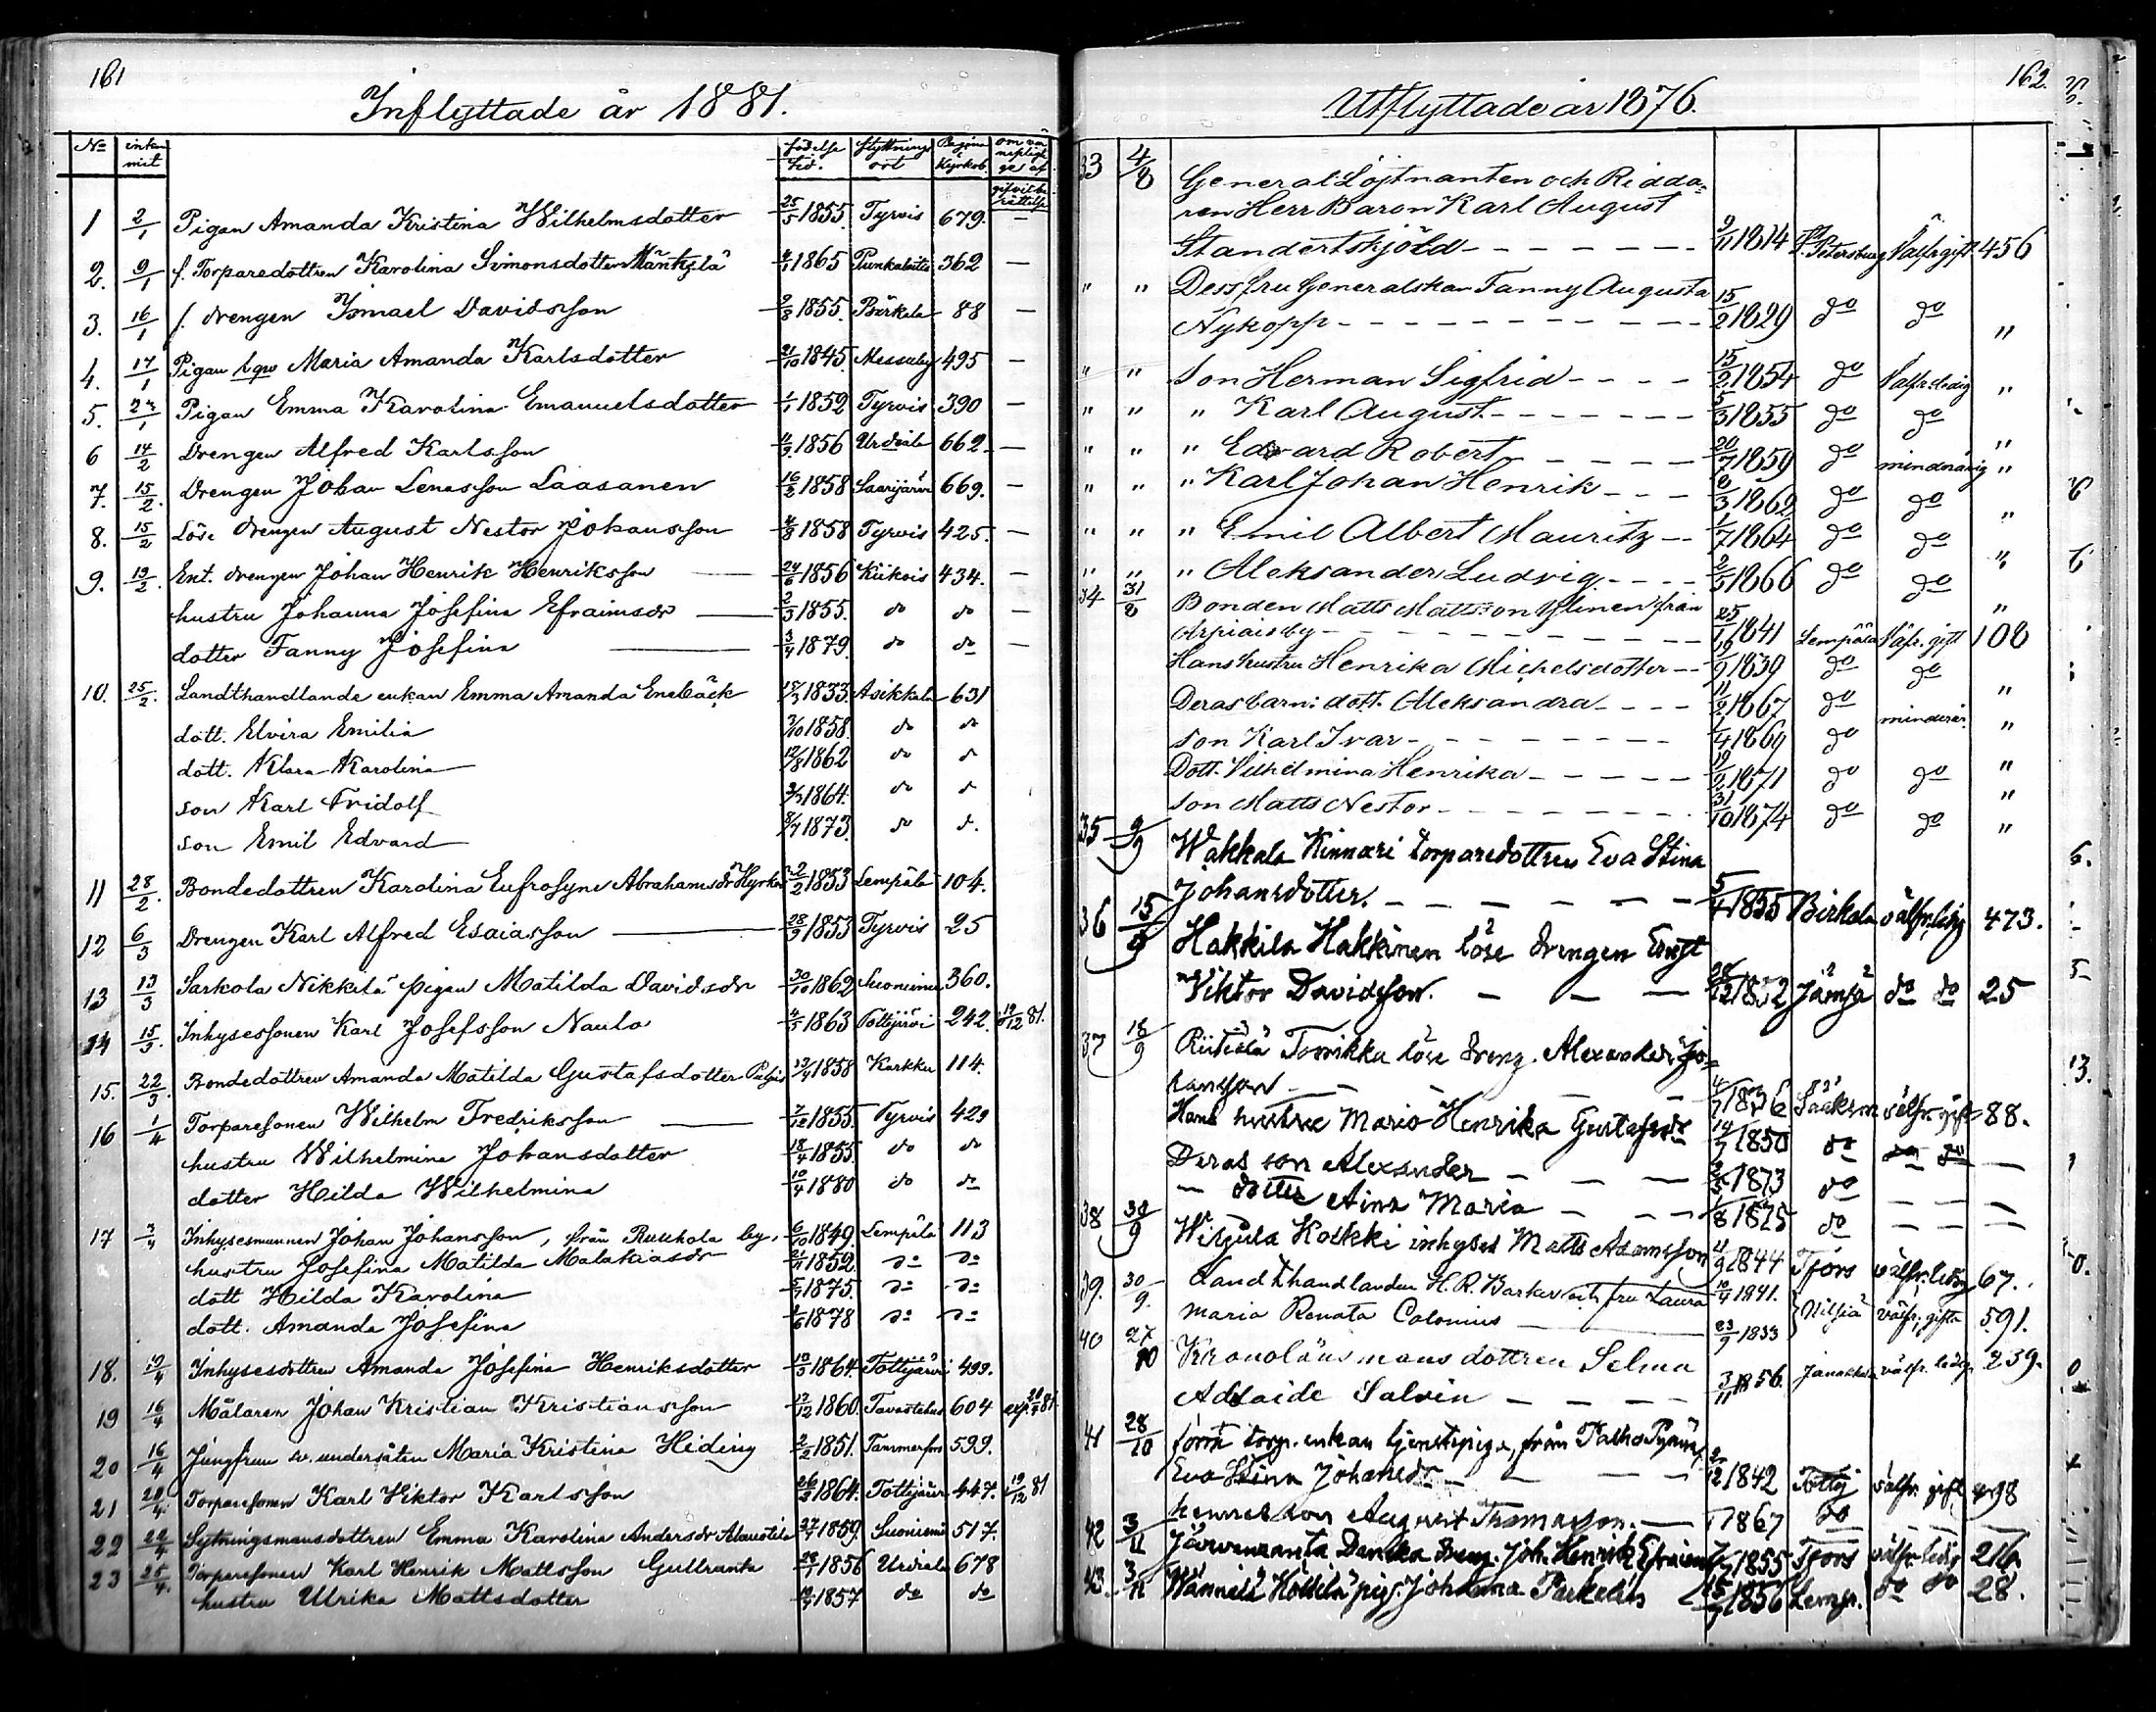 161
Inflyttade år 1881.
1 2/1 Pigan Amanda Kristina Wilhelmsdotter 25/5 1855. Tyrvis 679. —
2. 9/1 f. Torparedottren Karolina Simonsdotter 1865 362 —
3. 16/1 f. drengen Ismael Davidsson 2/8 1855. Birkala 88 —
4. 17/1 Pigan Maria Amanda Karlsdotter 21/10 1845. Messuby 495 —
5. Pigan Emma Karolina Emanuelsdotter 1/1 1852 Tyrvis 390 —
6 14/2 Drengen Alfred Karlsson 1856 Urdiala 662. —
7. 15/2. Drengen Johan Lenasson Laasanen 16/2 1858 Saarijärvi 669. —
8. 15/2 Löse drengen August Nestor Johansson 1858 Tyrvis 425. —
9. 19/2. Ent. drengen Johan Henrik Henriksson 24/6 1856 Kiikois 434. —
hustru Johanna Josefina Efraimsdr 2/3 1855. do do —
dotter Fanny Josefina 3/4 1879. do do —
10. 25/2. Landthandlande enkan Emma Amanda Enebäck 1833. Asikkala 631
dött. Elvira Emilia 3/10 1858. do do
dött. Klara Karolina 12/8 1862 do d
son Karl Fridolf 1864. do d
son Emil Edvard 8/7 1873. do d.
11 28/2. Bondedottren Karolina Eufrosyne Abrahamsdr 1853 Lempälä 104.
12 6/3 Drengen Karl Alfred Esaiasson 28/9 1853 Tyrvis 25
13 13/3 Sarkola Nikkilä pigan Matilda Davidsdr 30/10 1862 Suoniemi 360.
14 15/3. Inhysessonen Karl Josefsson Naulo 4/5 1863 Tottijärvi 242. 19/12 81.
15. 22/3. Bondedottren Amanda Matilda Gustafsdotter 1858 Karkku 114.
16 1/4 Torparesonen Wilhelm Fredriksson 7/12 1855. Tyrvis 429
hustru Wilhelmina Johansdotter 18/4 1855. do do
dotter Hilda Wilhelmina 10/4 1880 do do
17 3/4 Inhysesmannen Johan Johansson, från Ruskola by. 6/10 1849. Lempälä 113
hustru Josefina Matilda Malakiasdr 21/11 1852. do do
dött Hilda Karolina 1875. do do
dött. Amanda Josefina 1878 do do
18. 10/4 Inhysesdottren Amanda Josefina Henriksdotter 1864. Tottijärvi 499.
19 16/4 Målaren Johan Kristian Kristiansson 1860. Tavastehus 604
20 16/4 Jungfrun sv. undersåten Maria Kristina Hiding 2/2 1851. Tammerfors 599.
21 20/4. Torparesonen Karl Viktor Karlsson 26/3 1864. Tottijärvi 447. 19/12 81
22 Sytningsmansdottren Emma Karolina Andersdr 1859. Suoniemi 517.
23 25/4. Torparesonen Karl Henrik Mattsson Gullranta 1856 Urdiala 678
hustru Ulrika Mattsdotter 1857 do do
162.
Utflyttade år 1876.
33 4/8 General Löjtnanten och Ridda=
ren Herr Baron Karl August
Standertskjöld 9/11 1814 S:t Petersburg Välfr. gift 456
" " Dess fru Generalskan Fanny Augusta
Nykopp 15/2 1829 do do "
" " Son Herman Sigfrid 15/2 1854 do Välfr. ledig "
" " " Karl August 5/3 1855 do do
" " " Edvard Robert 20/7 1859 do minderårig "
" " " Karl Johan Henrik 8/3 1862 do do "
" " " Emil Albert Mauritz 1/7 1864 do do "
" " " Aleksander Ludvig 2/5 1866 do do "
34 31/8 Bonden Matts Mattsson från
Arpiais by 25/1 1841 Lempäla Välfr. gift 108
Hans hustru Henrika Michelsdotter 19/9 1839 do do "
Deras barn: dott. Aleksandra 11/2 1867 do minderår. "
son Karl Ivar 1/4 1869 do "
Dott. Vilhelmina Henrika 19/2 1871 do do "
son Matts Nestor 31/10 1874 do do "
35 9/9 Wakkala Kinnari torparedottren Eva Stina
Johansdotter. 5/4 1855 Birkala välfr. ledig 473.
36 15/9 Hakkila Hakkinen löse drengen Ernst
Viktor Davidsson. 28/12 1852 Jämsä do do 25
37 18/9 löse dreng. Alexander Jo=
hansson 1836 Sääksm välfr. gift 88.
Hans hustru Maria Henrika Gustafsdr 14/7 1850 do do
Deras son Alexander 1873 do
— dotter Aina Maria 1/8 1875 do
38 30/9 Koskki inhyses Matts Adamsson 1844 Tfors välfr. ledig 67.
39. 30/9. Landthandlanden H. R. Barker och fru Laura 10/4 1841.
Maria Renata Calonius 23/7 1833 Nilsiä välfr. gifta 591.
40 27/10 Kronolänsmans dottren Selma
Adelaide Salvén 3/11 1856. Janakkala välfr. ledig 239.
41 28/10 förra torp. enkan tjenstepiga, från
Eva Stina Johansdr 2/12 1842 Tottij välfr. gift 498
hennes son August Thomasson. 1867 do
42 3/11 Järvenranta dreng. Joh. Henrik Efraims 1855 Tfors välfr. ledig 216
43. 3/11 pig. Johanna 1856 Lemp. do do 28.